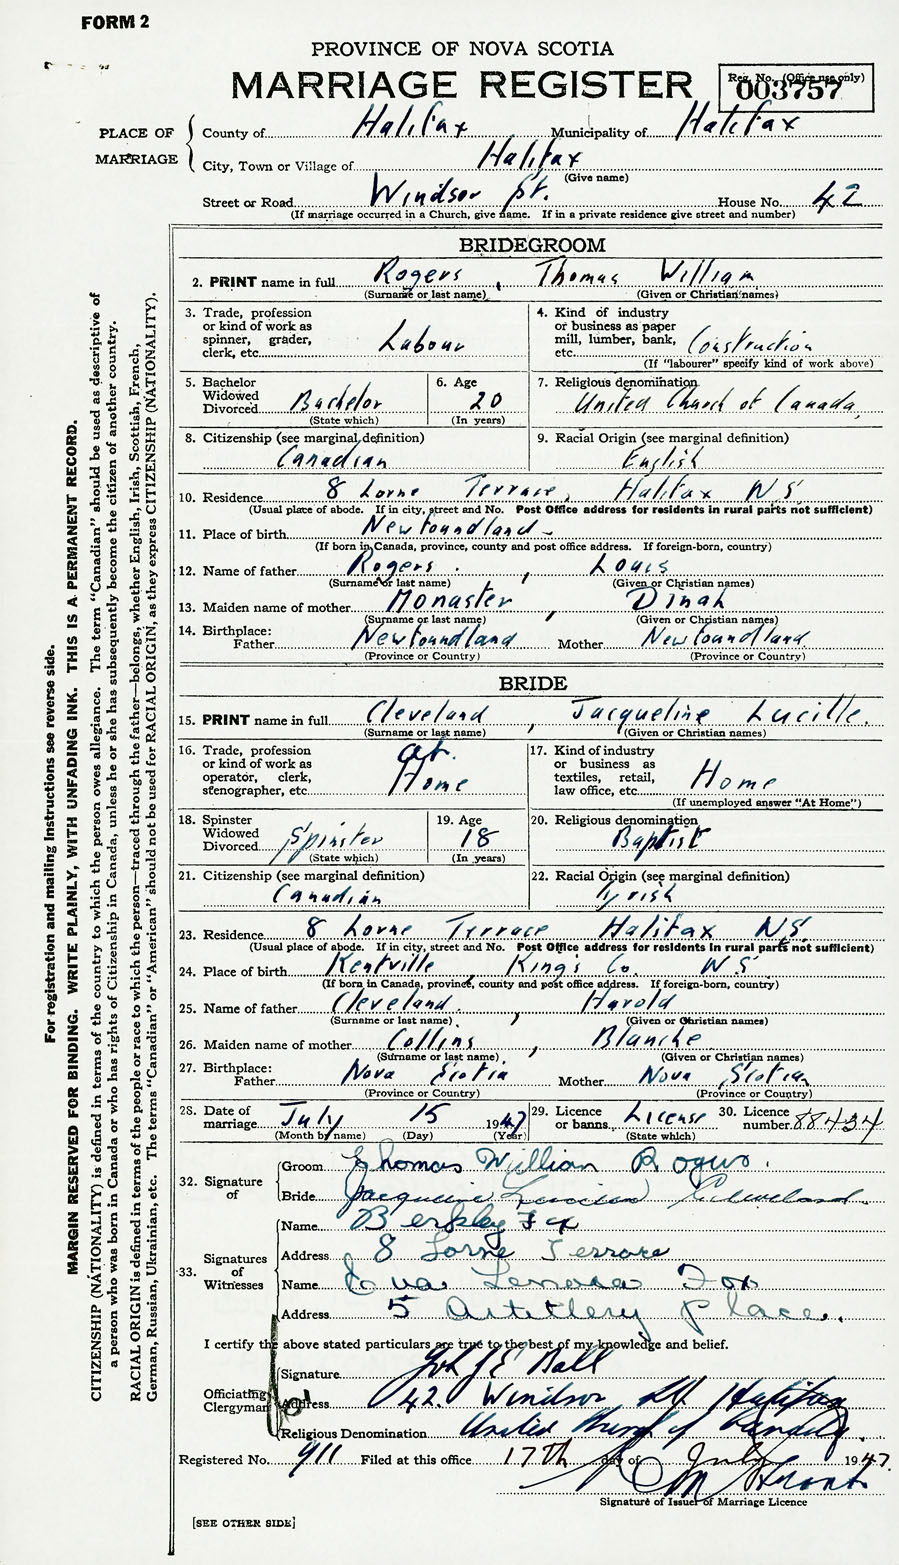 FORM 2
PROVINCE OF NOVA SCOTIA
MARRIAGE REGISTER
Reg. No. (Office use only)
003757
PLACE OF MARRIAGE
County of Halifax Municipality of Halifax
City, Town or Village of Halifax
(Give name)
Street or Road Windsor St. House No. 42
(If marriage occurred in a Church, give name. If in a private residence give street and number)
BRIDEGROOM
2. PRINT name in full Rogers, Thomas William
(Surname or last name) (Given or Christian names)
3. Trade, profession or kind of work as spinner, grader, clerk, etc. Labour
4. Kind of industry or business as paper mill, lumber, bank, etc. Construction
(If "labourer" specify kind of work above)
5. Bachelor Widowed Divorced Bachelor
(State which)
6. Age 20
(In years)
7. Religious denomination United Church of Canada,
8. Citizenship (see marginal definition) Canadian
9. Racial Origin (see marginal definition) English
10. Residence 8 Lorne Terrace, Halifax N S
(Usual place of abode. If in city, street and No. Post Office address for residents in rural parts not sufficient)
11. Place of birth Newfoundland
(If born in Canada, province, county and post office address. If foreign-born, country)
12. Name of father Rogers, Louis
(Surname or last name) (Given or Christian names)
13. Maiden name of mother Monaster, Dinah
(Surname or last name) (Given or Christian names)
14. Birthplace: Father Newfoundland Mother Newfoundland
(Province or Country) (Province or Country)
BRIDE
15. PRINT name in full Cleveland, Jacqueline Lucille.
(Surname or last name) (Given or Christian names)
16. Trade, profession or kind of work as operator, clerk, stenographer, etc. at Home
17. Kind of industry or business as textiles, retail, law office, etc. Home
(If unemployed answer "At Home")
18. Spinster Widowed Divorced Spinster
(State which)
19. Age 18
(In years)
20. Religious denomination Baptist
21. Citizenship (see marginal definition) Canadian
22. Racial Origin (see marginal definition) Irish
23. Residence 8 Lorne Terrace Halifax N.S.
(Usual place of abode. If in city, street and No. Post Office address for residents in rural parts not sufficient)
24. Place of birth Kentville, King's Co. N S
(If born in Canada, province, county and post office address. If foreign-born, country)
25. Name of father Cleveland, Harold
(Surname or last name) (Given or Christian names)
26. Maiden name of mother Collins, Blanche
(Surname or last name) (Given or Christian names)
27. Birthplace: Father Nova Scotia Mother Nova Scotia
(Province or Country) (Province or Country)
28. Date of marriage July 15 1947
(Month by name) (Day) (Year)
29. Licence or banns License
(State which)
30. Licence number 88434
32. Signature of
Groom Thomas William Rogers.
Bride Jacqueline Cleveland
33. Signatures of Witnesses
Name Berkley Fox
Address 8 Lorne Terrace
Name Eva Lenora Fox
Address 5 Artillery Place.
I certify the above stated particulars are true to the best of my knowledge and belief.
Officiating Clergyman
Signature Ball
Address 42 Windsor St Halifax
Religious Denomination United Church of Canada.
Registered No. 911 Filed at this office 17th day of July 1947
Signature of Issuer of Marriage Licence
[SEE OTHER SIDE]
For registration and mailing instructions see reverse side.
MARGIN RESERVED FOR BINDING. WRITE PLAINLY, WITH UNFADING INK. THIS IS A PERMANENT RECORD.
CITIZENSHIP (NATIONALITY) is defined in terms of the country to which the person owes allegiance. The term "Canadian" should be used as descriptive of
a person who was born in Canada or who has rights of Citizenship in Canada, unless he or she has subsequently become the citizen of another country.
RACIAL ORIGIN is defined in terms of the people or race to which the person—traced through the father—belongs, whether English, Irish, Scottish, French,
German, Russian, Ukrainian, etc. The terms "Canadian" or "American" should not be used for RACIAL ORIGIN, as they express CITIZENSHIP (NATIONALITY).